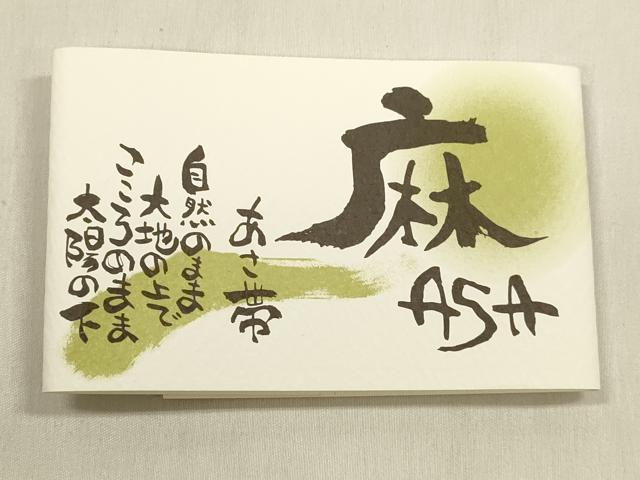 麻
ASA
あさ帯
自然のまま
大地の上で
こころのまま
太陽の下